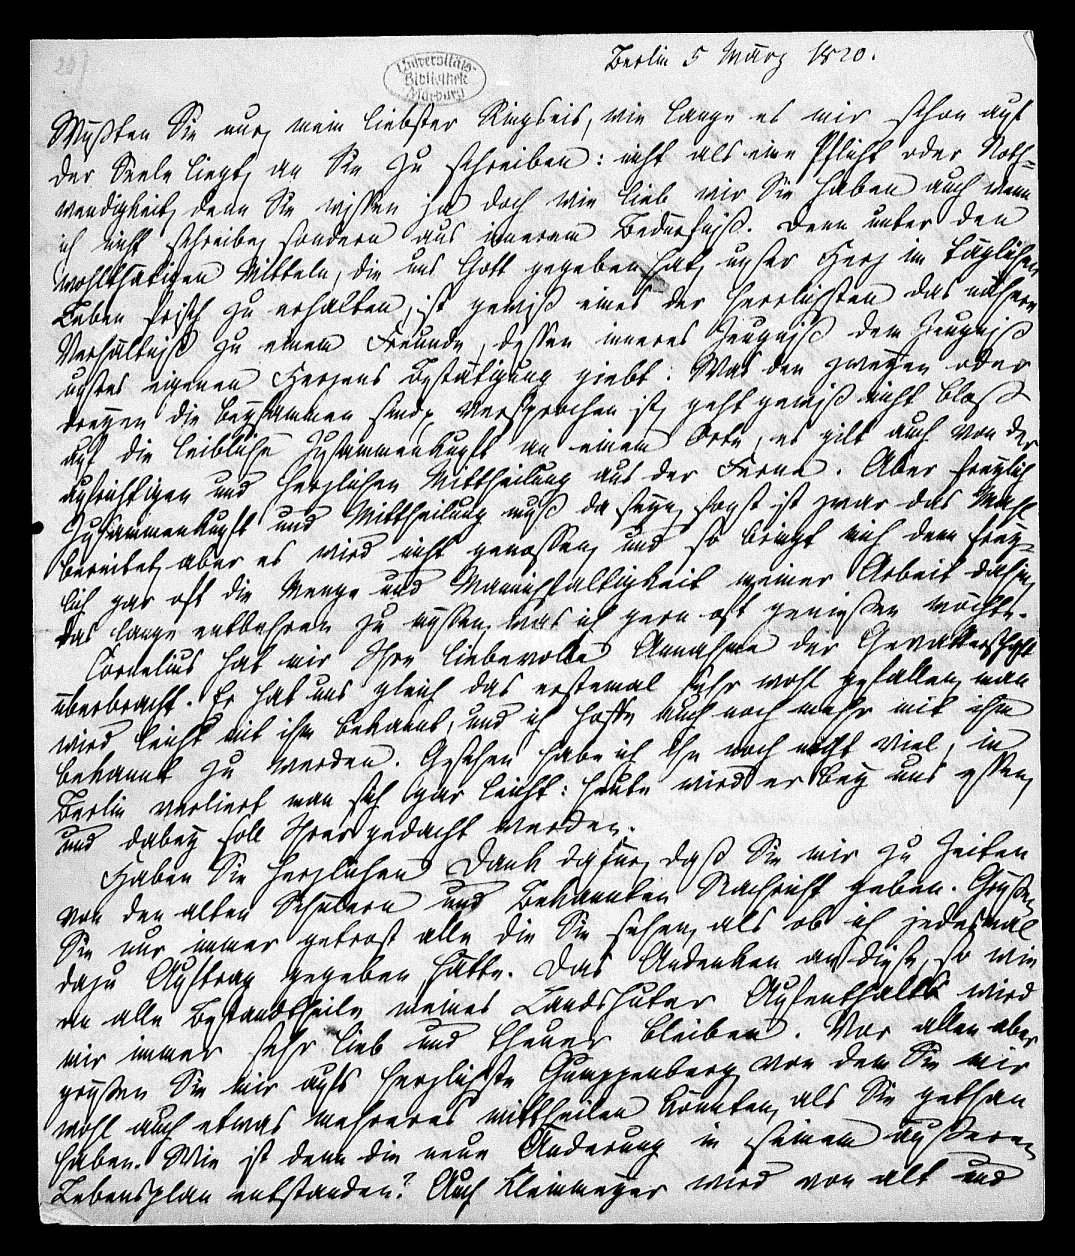 20)
Universitäts-
Bibliothek
Marburg
Berlin 5 März 1820.
Wüßten Sie nur, mein liebster Ringseis, wie lange es mir schon auf
der Seele liegt, an Sie zu schreiben: nicht als eine Pflicht oder Noth-
wendigkeit, denn Sie wissen ja doch wie lieb wir Sie haben auch wenn
ich nicht schreibe, sondern aus innerem Bedürfniß. Denn unter den
wohlthätigen Mitteln, die uns Gott gegeben hat, unser Herz im täglichen
Leben frisch zu erhalten, ist gewiß eines der herrlichsten das nähere
Verhältniß zu einem Freunde, dessen inneres Zeugniß dem Zeugniß
unsres eigenen Herzens Bestätigung giebt: Was den zweyen oder
dreyen die beysammen sind, versprochen ist, geht gewiß nicht bloß
auf die leibliche Zusammenkunft an einem Orte, es gilt auch von der
aufrichtigen und herzlichen Mittheilung aus der Ferne. Aber freylich
Zusammenkunft und Mittheilung muß da seyn, sonst ist zwar das Mahl
bereitet, aber es wird nicht genossen, und so bringt mich denn frey-
lich gar oft die Menge und Mannichfaltigkeit meiner Arbeit dahin,
das lange entbehren zu müssen, was ich gern oft genießen möchte.
Cornelius hat mir Ihre liebevolle Annahme der Gevatterschaft
überbracht. Er hat uns gleich das erstemal sehr wohl gefallen, man
wird leicht mit ihm bekannt, und ich hoffe auch noch mehr mit ihm
bekannt zu werden. Gesehen habe ich ihn noch nicht viel, in
Berlin verliert man sich gar leicht: heute wird er bey uns essen,
und dabey soll Ihrer gedacht werden.
Haben Sie herzlichen Dank dafür, daß Sie mir zu Zeiten
von den alten Schülern und Bekannten Nachricht geben. Grüßen
Sie nur immer getrost alle die Sie sehen, als ob ich jedesmal
dazu Auftrag gegeben hätte. Das Andenken an diese, so wie
an alle Bestandtheile meines Landshuter Aufenthalts wird
mir immer sehr lieb und theuer bleiben. Vor allen aber
grüßen Sie mir aufs herzlichste Gumppenberg, von dem Sie mir
wohl auch etwas mehreres mittheilen könnten, als Sie gethan
haben. Wie ist denn die neue Änderung in seinem äußeren
Lebensplan entstanden? Auch Kleinmayer wird von alt und